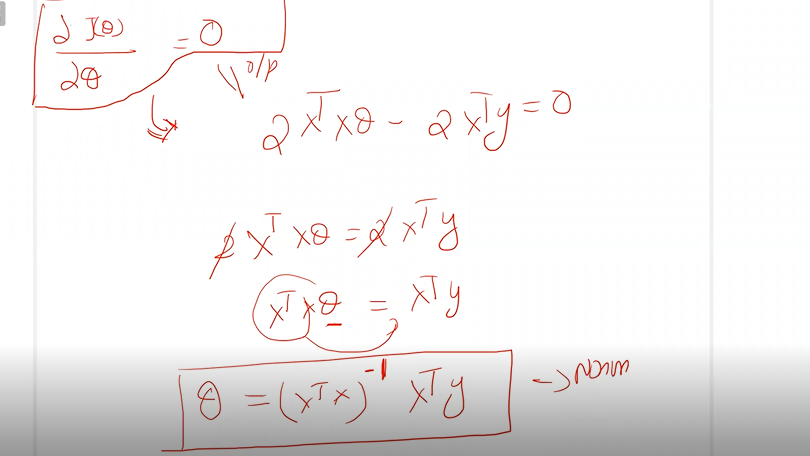 ∂J(θ)/∂θ = 0
o/p
2X^T Xθ - 2X^T y = 0
2X^T Xθ = 2X^T y
X^T Xθ = X^T y
θ = (X^T X)^-1 X^T y → Norm